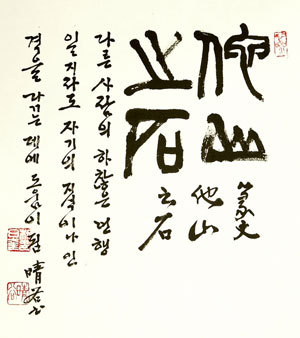 他山
之石
篆文
他山
之石
다른 사람의 하찮은 언행
일지라도 자기의 지식이나 인
격을 가꾸는 데에 도움이 됨
晴